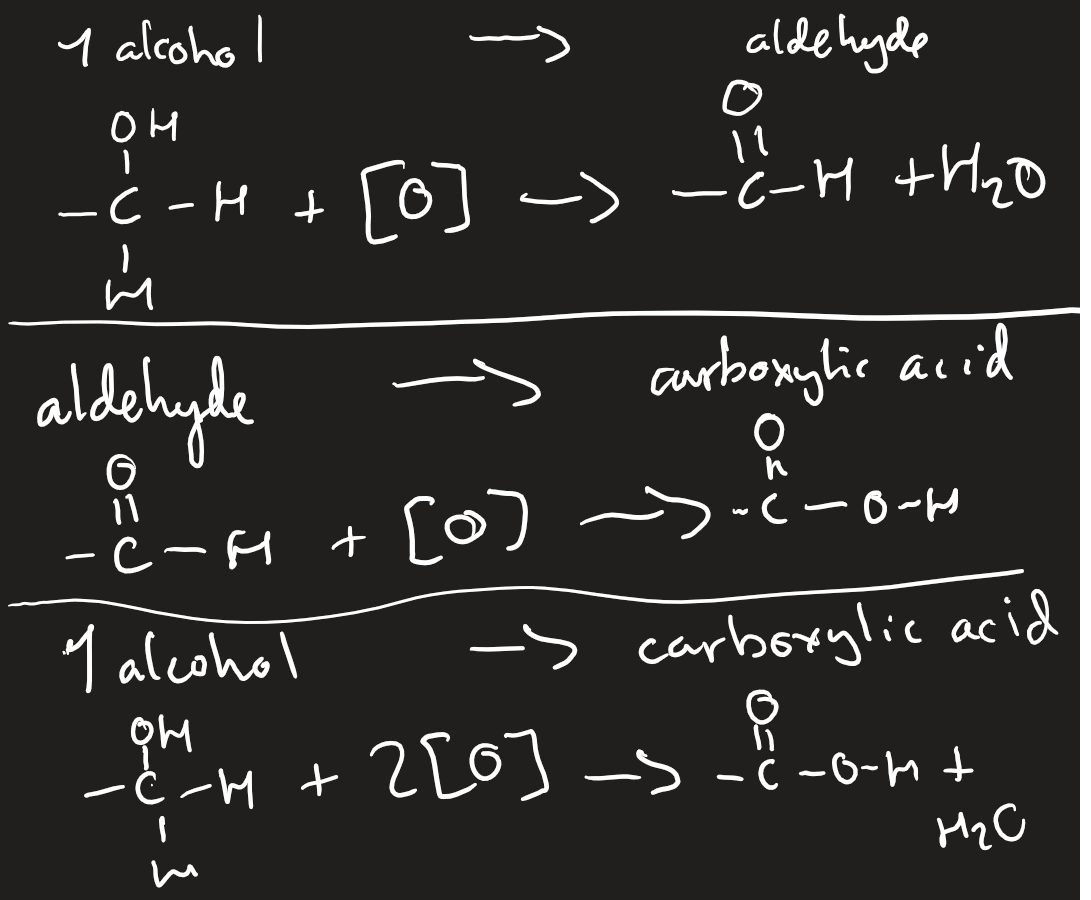 1 alcohol → aldehyde
OH O
| ||
– C – H + [O] → – C – H + H₂O
|
H
aldehyde → carboxylic acid
O O
|| ||
– C – H + [O] → – C – O – H
1 alcohol → carboxylic acid
OH O
| ||
– C – H + 2[O] → – C – O – H +
| H₂C
H